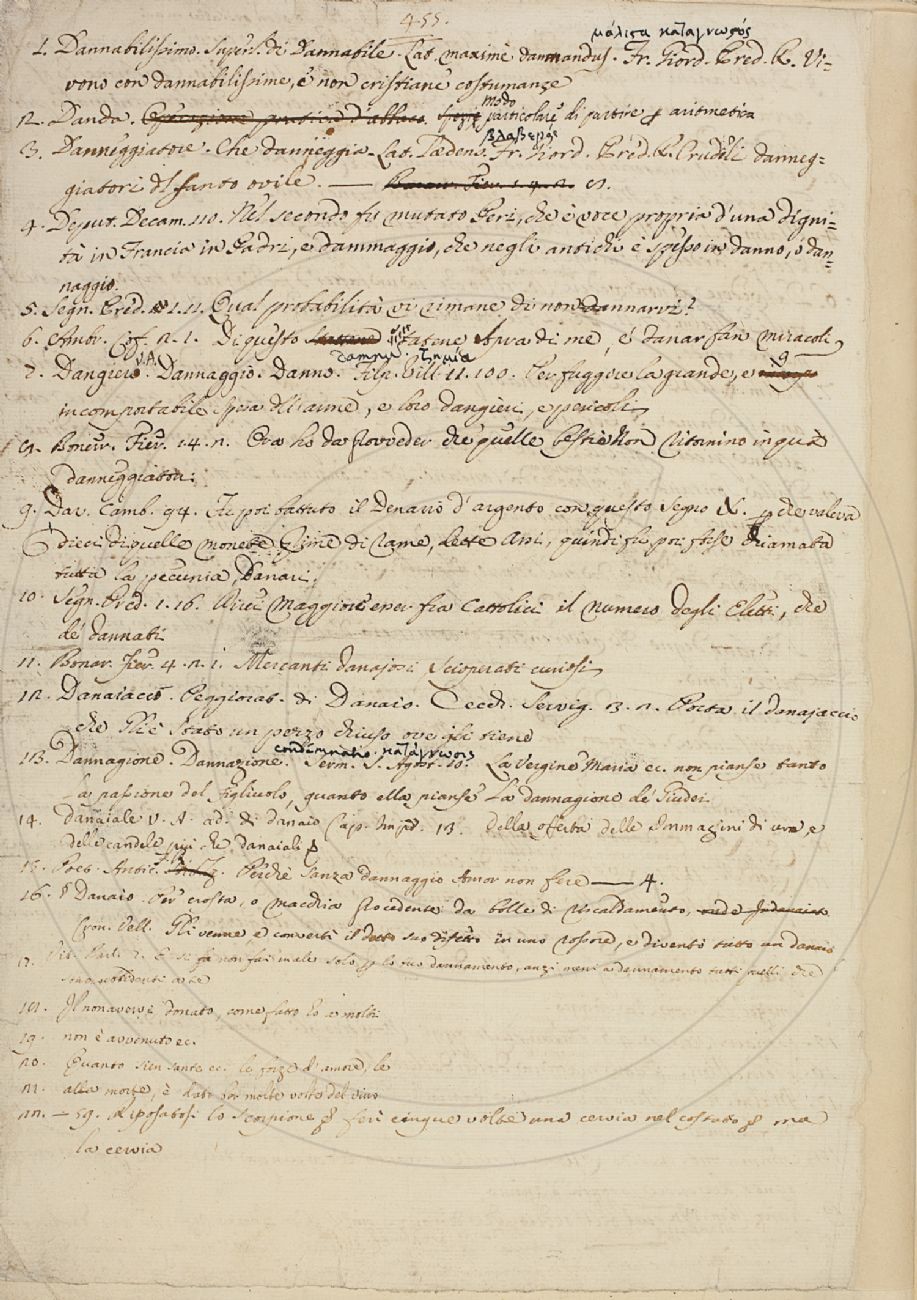 455.
μάλιςα καταγνωςός
1. Dannabilissimo. Superl. di Dannabile. Lat. maximè damnandus. Fr. Giord. Pred. R. Vi=
vono con dannabilissime, e non cristiane costumanze
modo
2. Danda. Operazione pratica d'abbaco. Spezie particolare di partire aritmetica
βλαβερός
3. Danneggiatore. Che danneggia. Lat. Lædens. Fr. Giord. Pred. R. Crudeli danneg=
giatori del santo ovile. — Bonar. Fier. 1. 4. 2. 8.
4. Deput. Decam. 110. Nel secondo fu mutato Peri, che è voce propria d'una digni=
tà in Francia in Padri, e dammaggio, che negli antichi è spesso in danno, o dan=
naggio.
5. Segn. Pred. 1. 11. Qual probabilità vi rimane di non dannarvi?
6. Ambr. Cof. 2. 1. Di questo statene sopra di me, è danar fan miracoli
damnu. ζημία
7. Dangiero V.A. Dannaggio. Danno. Filip. Vill. 11. 100. Per fuggire la grande, e
incomportabile spesa dell'arme, e loro dangieri, e pericoli
8. Bonar. Fier. 1. 4. 2. Ora ho da provveder che quelle bestie Non ritornino in quà
danneggiatrici.
9. Dav. Camb. 94. Fu poi battuto il Denario d'argento con questo segno X. che valeva
dieci di quelle monete prime di rame, dette Assi, quindi fu poi forse chiamata
tutta la pecunia, Danari.
10. Segn. Pred. 1. 16. Dirci maggiore esser fra Cattolici il numero degli Eletti, che
de' dannati
11. Bonar. Fier. 4. 2. 1. Mercanti danajosi Scioperati curiosi
12. Danaiaccio. Peggiorat. di Danaio. Cecch. Servig. 3. 2. Porta il danajaccio
che Gli è stato un pezzo chiuso ove gli tiene
condemnatio. κατάγνωσις
13. Dannagione. Dannazione. Serm. S. Agost. 10. La Vergine Maria ec. non pianse tanto
la passione del figliuolo, quanto ella pianse la dannagione de' Giudei
14. Danaiale V. A. ad. di danaio Cap. Impr. 13. Della offerta delle Immagini di cera, e
delle candele più che danaiali
15. Poet. Antic. Perchè sanza dannaggio Amor non fere — 4.
16. Danaio. Per crosta, o macchia procedente da bolle di riscaldamento,
Cron. Vell. Gli venne, e convertì il detto suo difetto in uno rossore, e diventò tutto un danaio
17. E si fà non fai male solo lo tuo dannamento, anzi meni a dannamento tutti quelli, che
sono ubbidenti a te
18. Il non avere donato, come fatto hò a molti
19. non è avvenuto ec.
20. Quanto sien sante ec. le forze d'amore, le
21. alla morte, è dato per molte volte del viso
22. — 59. Riposatosi lo scorpione ferì cinque volte una cervia nel costato ma
la cervia